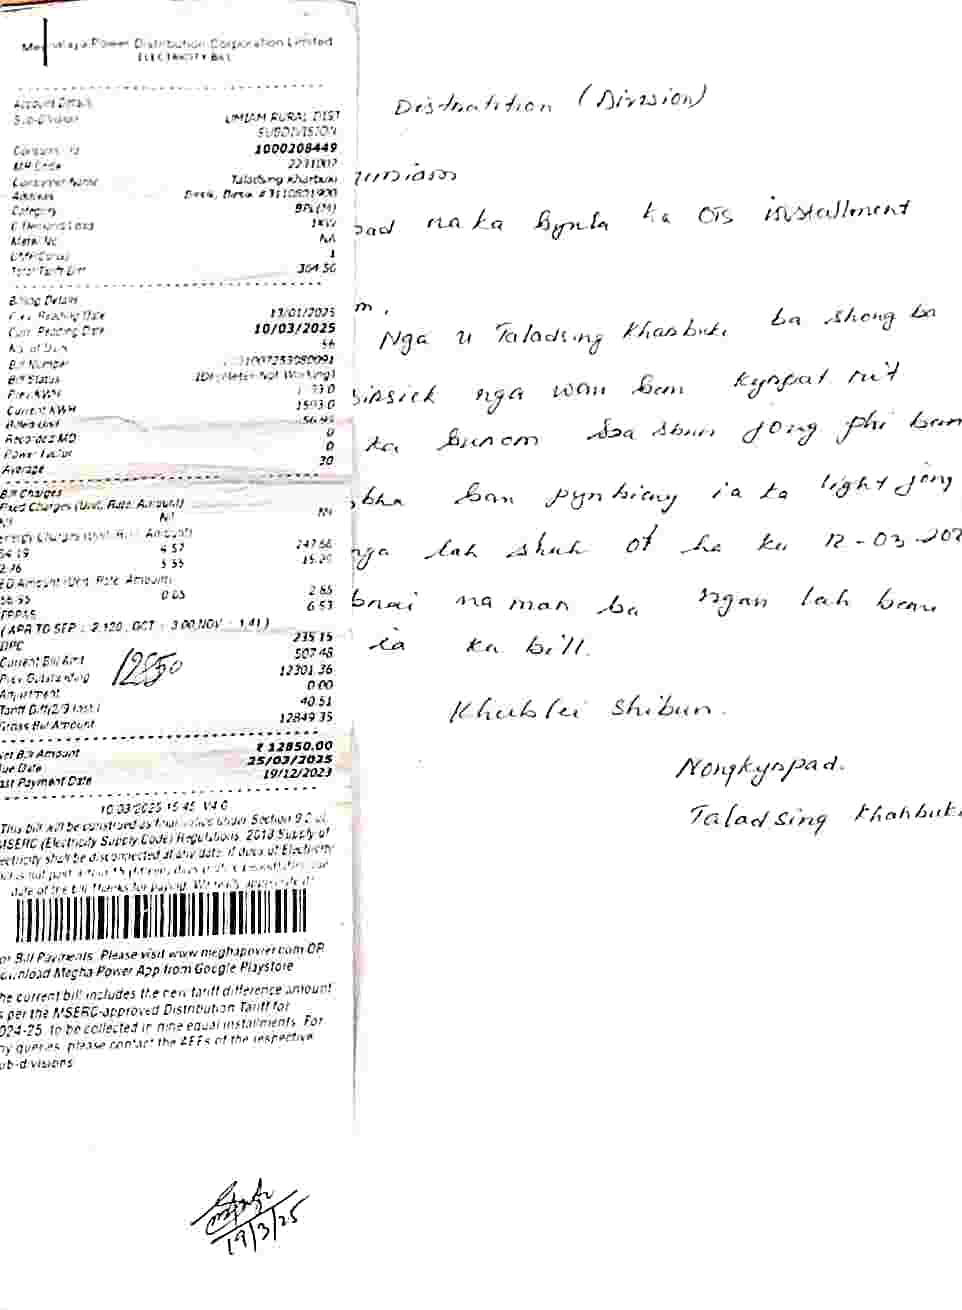 Meghalaya Power Distribution Corporation Limited
ELECTRICITY BILL
Account Details
Sub-Division UMIAM RURAL DIST
SUBDIVISION
1000208449
MR Code 2231007
Consumer Name Taladsing Kharbuki
Address
Category BPL(M)
1KW
Meter No NA
1
364.56
Billing Details
Prev. Reading Date 13/01/2025
Curr. Reading Date 10/03/2025
No. of Days 56
Bill Number
Bill Status (Meter Not Working)
Prev KWH
Current KWH 1593.0
Billed Unit 56.95
Recorded MD 0
Power Factor 0
Average 30
Bill Charges
Fixed Charges (Unit, Rate, Amount)
Nil Nil Nil
Energy Charges (Unit, Rate, Amount)
54.19 4.57 247.66
2.76 5.55 15.29
ED Amount (Unit, Rate, Amount)
56.95 0.05 2.85
FPPAS 6.53
(APR TO SEP : 2.120, OCT : 3.00, NOV : 1.41)
DPC 235.15
Current Bill Amt 507.48
Prev Outstanding 12301.36
Adjustment 0.00
Tariff Diff 40.51
Gross Bill Amount 12849.35
12850
Net Bill Amount ₹ 12850.00
Due Date 25/03/2025
Last Payment Date 19/12/2023
10/03/2025 15:45 V4.0
This bill will be construed as final notice under Section 9.2 of
MSERC (Electricity Supply Code) Regulations, 2018 Supply of
electricity shall be disconnected at any date if dues of Electricity
date of the bill. Thanks for paying. We really appreciate it
For Bill Payments, Please visit www.meghapower.com OR
Download Megha Power App from Google Playstore
The current bill includes the new tariff difference amount
as per the MSERC-approved Distribution Tariff for
2024-25, to be collected in nine equal installments. For
any queries, please contact the AEEs of the respective
sub-divisions
Distratition (Division)
umiam
pad na ka bynta ka OTS installment
m,
Nga u Taladsing Kharbuki ba shong ba
sirsick nga wan ban kyrpat
ka burom ba shun jong phi ban
bha ban pynbiang ia ka light jong
nga lah shuh ha ka 12-03-202
bnai na man ba ngan lah ban
ia ka bill.
Khublei Shibun.
Nongkyrpad.
Taladsing Kharbuki
19/3/25